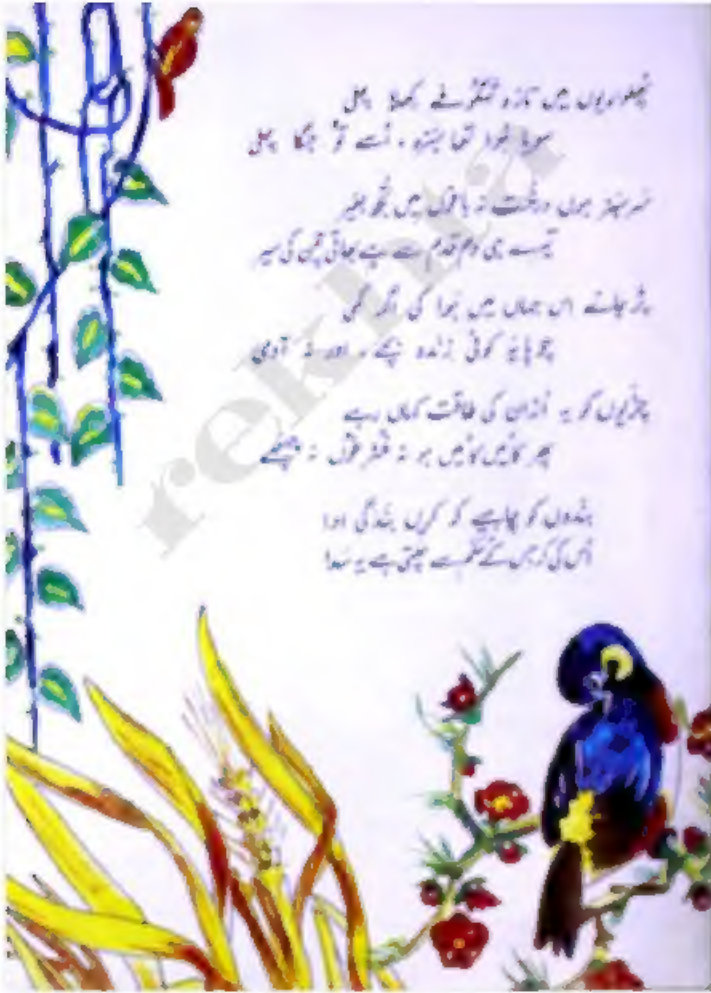 پھلواریوں میں تازہ شگوفے کھلا چلی
سویا ہوا تھا سبزہ، اُسے تُو جگا چلی
سرسبز ہوں درخت نہ باغوں میں تجھ بغیر
تیرے ہی دم قدم سے ہے بھاتی چمن کی سیر
پڑ جائے اس جہاں میں ہوا کی اگر کمی
چوپایہ کوئی زندہ بچے، اور نہ آدمی
چڑیوں کو یہ اُڑان کی طاقت کہاں رہے
پھر کائیں کائیں ہو نہ غٹرغوں نہ چہچہے
بندوں کو چاہیے کہ کریں بندگی ادا
اُس کی کہ جس کے حکم سے چلتی ہے یہ سدا
rekhta